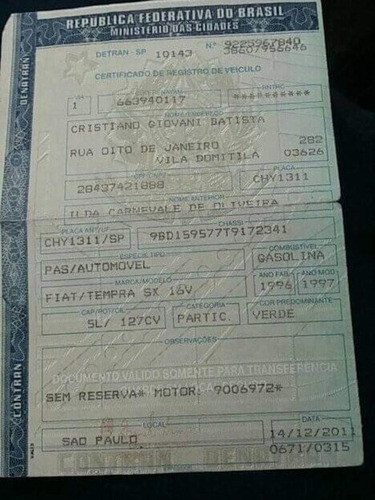 REPÚBLICA FEDERATIVA DO BRASIL
MINISTÉRIO DAS CIDADES
DETRAN - SP 10143 Nº
CERTIFICADO DE REGISTRO DE VEÍCULO
VIA CÓD. RENAVAM RNTRC
1 663940117 *********
NOME/ENDEREÇO
CRISTIANO GIOVANI BATISTA
RUA OITO DE JANEIRO 282
VILA DOMITILA 03626
CPF/CNPJ PLACA
28437421888 CHY1311
NOME ANTERIOR
ILDA CARNEVALE DE OLIVEIRA
PLACA ANT/UF CHASSI
CHY1311/SP 9BD159577T9172341
ESPÉCIE TIPO COMBUSTÍVEL
PAS/AUTOMOVEL GASOLINA
MARCA/MODELO ANO FAB. ANO MOD
FIAT/TEMPRA SX 16V 1996 1997
CAP/POT/CIL CATEGORIA COR PREDOMINANTE
5L/ 127CV PARTIC. VERDE
OBSERVAÇÕES
DOCUMENTO VALIDO SOMENTE PARA TRANSFERENCIA
SEM RESERVA* MOTOR: 9006972*
LOCAL DATA
SAO PAULO 14/12/2011
0671/0315
CONTRAN DENATRAN
DENATRAN
CONTRAN